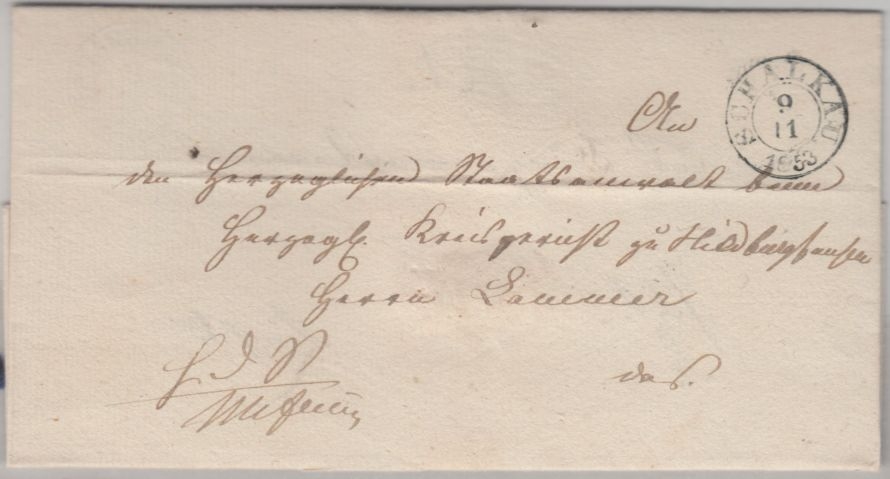 SCHALKAU
9
11
1853
An
den Herzoglichen Staatsanwalt beim
Herzogl. Kreisgericht zu Hildburghausen
Herrn Lommer
H d S
das.